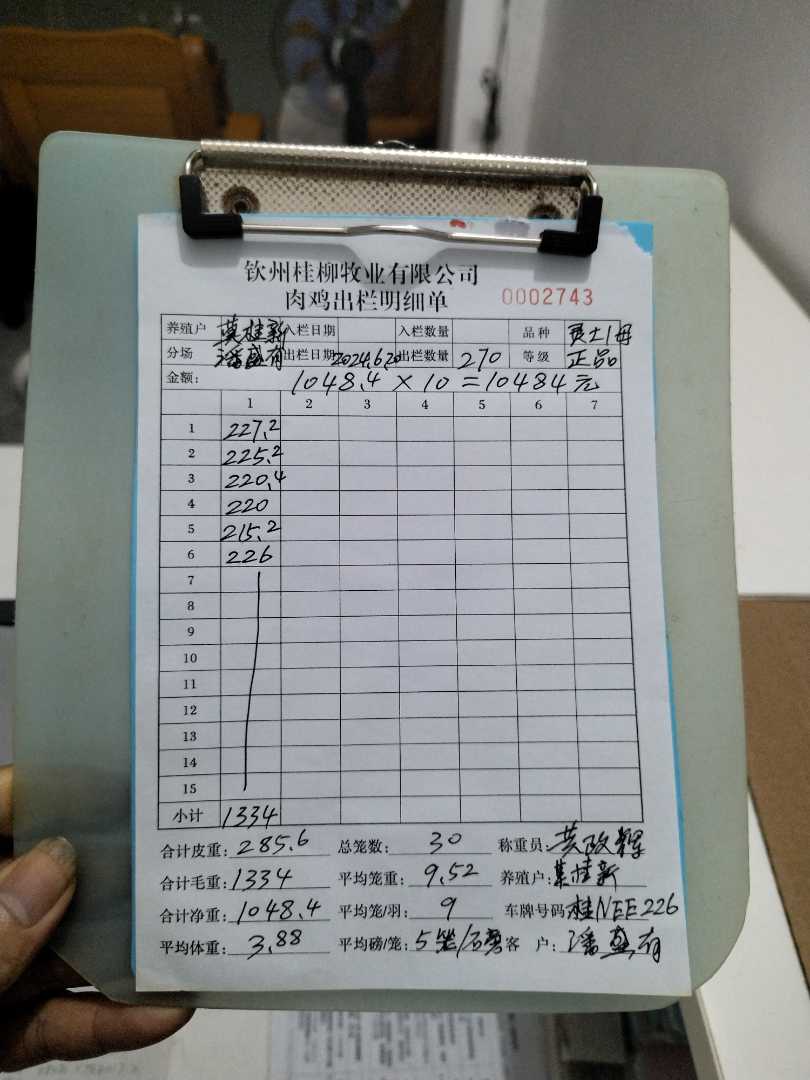 钦州桂柳牧业有限公司
肉鸡出栏明细单 0002743
养殖户 莫桂新 入栏日期 入栏数量 品种 贵士1母
分场 潘盛有 出栏日期 2024.6.20 出栏数量 270 等级 正品
金额: 1048.4 × 10 = 10484元
1 2 3 4 5 6 7
1 227.2
2 225.2
3 220.4
4 220
5 215.2
6 226
7
8
9
10
11
12
13
14
15
小计 1334
合计皮重: 285.6 总笼数: 30 称重员:
合计毛重: 1334 平均笼重: 9.52 养殖户: 莫桂新
合计净重: 1048.4 平均笼/羽: 9 车牌号码 桂NEE226
平均体重: 3.88 平均磅/笼: 5笼/ 客 户: 潘盛有